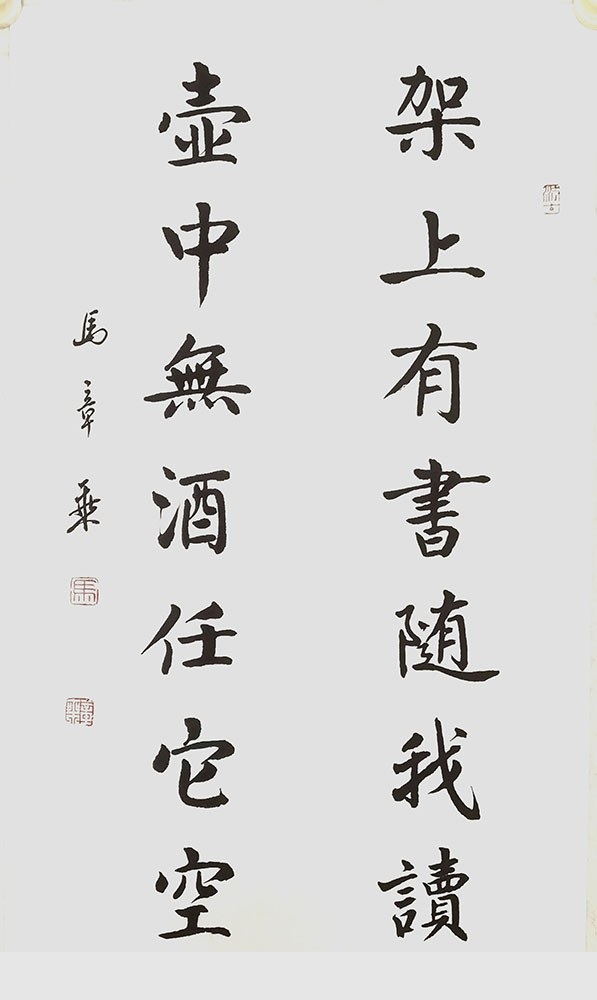 架上有書隨我讀
壺中無酒任它空
馬章乘
馬